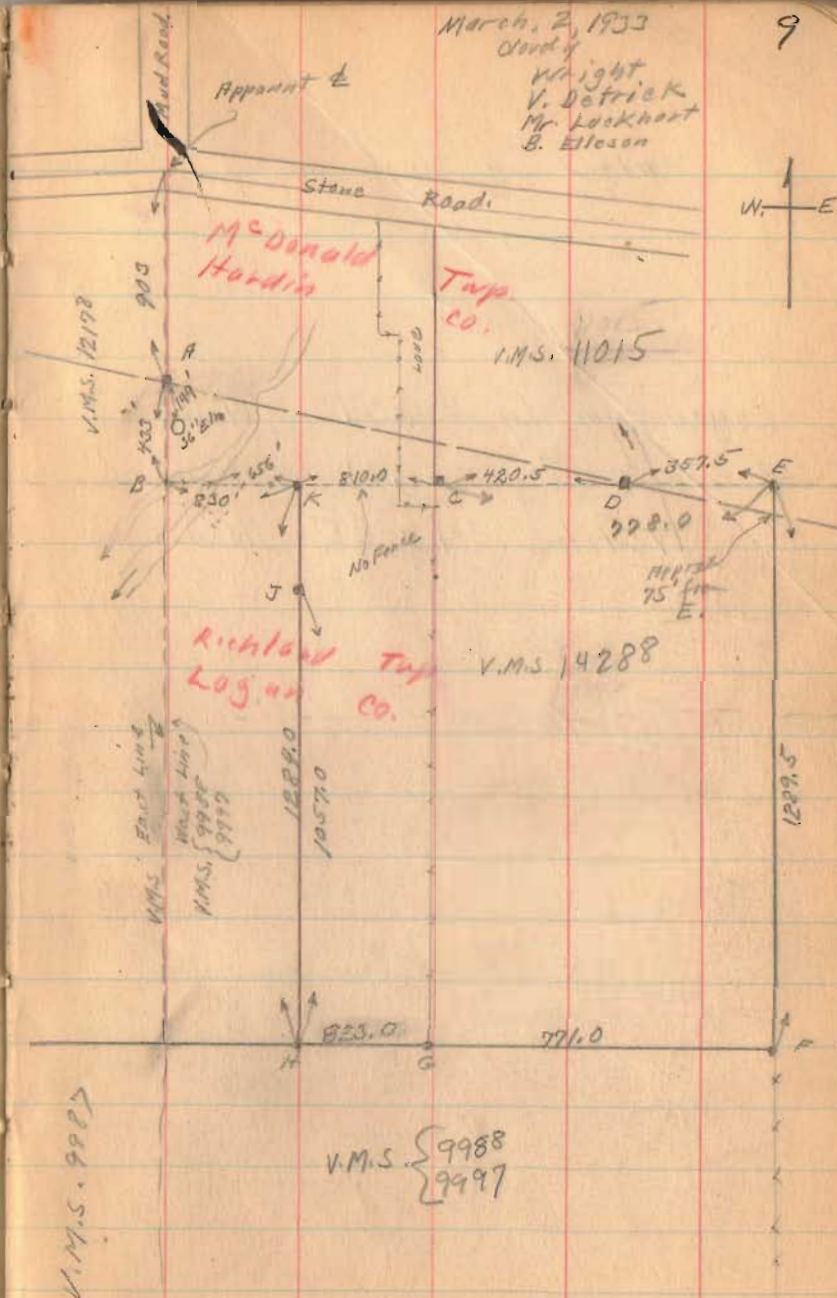 March, 2, 1933
9
Cloudy
Wright
V. Detrick
Mr. Lockhart
B. Elleson
Mud Road
Apparent ℄
Stone Road.
W. E
McDonald Twp.
Hardin Co.
V.M.S. 12178
903
A
199'
36" Elm
433
V.M.S. 11015
B
830'
656'
K
810.0
C
420.5
D
357.5
E
778.0
No Fence
75' from
E.
J
Richland Twp
Logan Co.
V.M.S 14288
V.M.S. East Line
West Line
V.M.S. { 9988
9997
1289.0
1057.0
1289.5
H
823.0
G
771.0
F
V.M.S. { 9988
9997
V.M.S. 9987